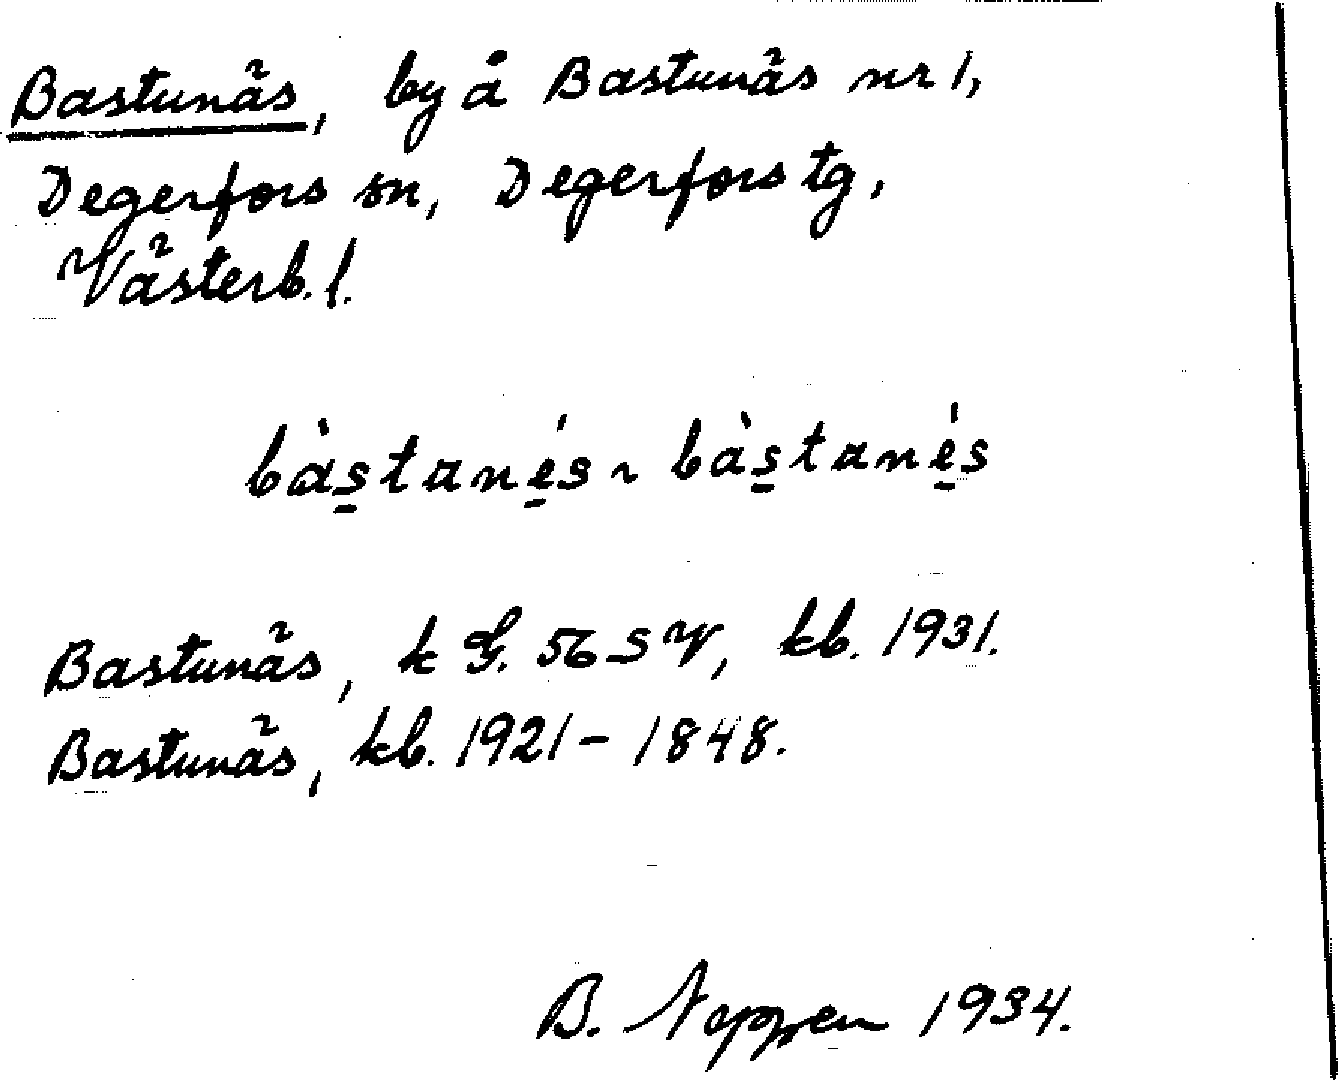 Bastunäs, by å Bastunäs nr 1,
Degerfors sn, Degerfors tg,
Västerb. l.
bàs̠tané̠s ~ bàs̠tané̠s
Bastunäs, k G. 56 SV, kb. 1931.
Bastunäs, kb. 1921 - 1848.
B. 1934.